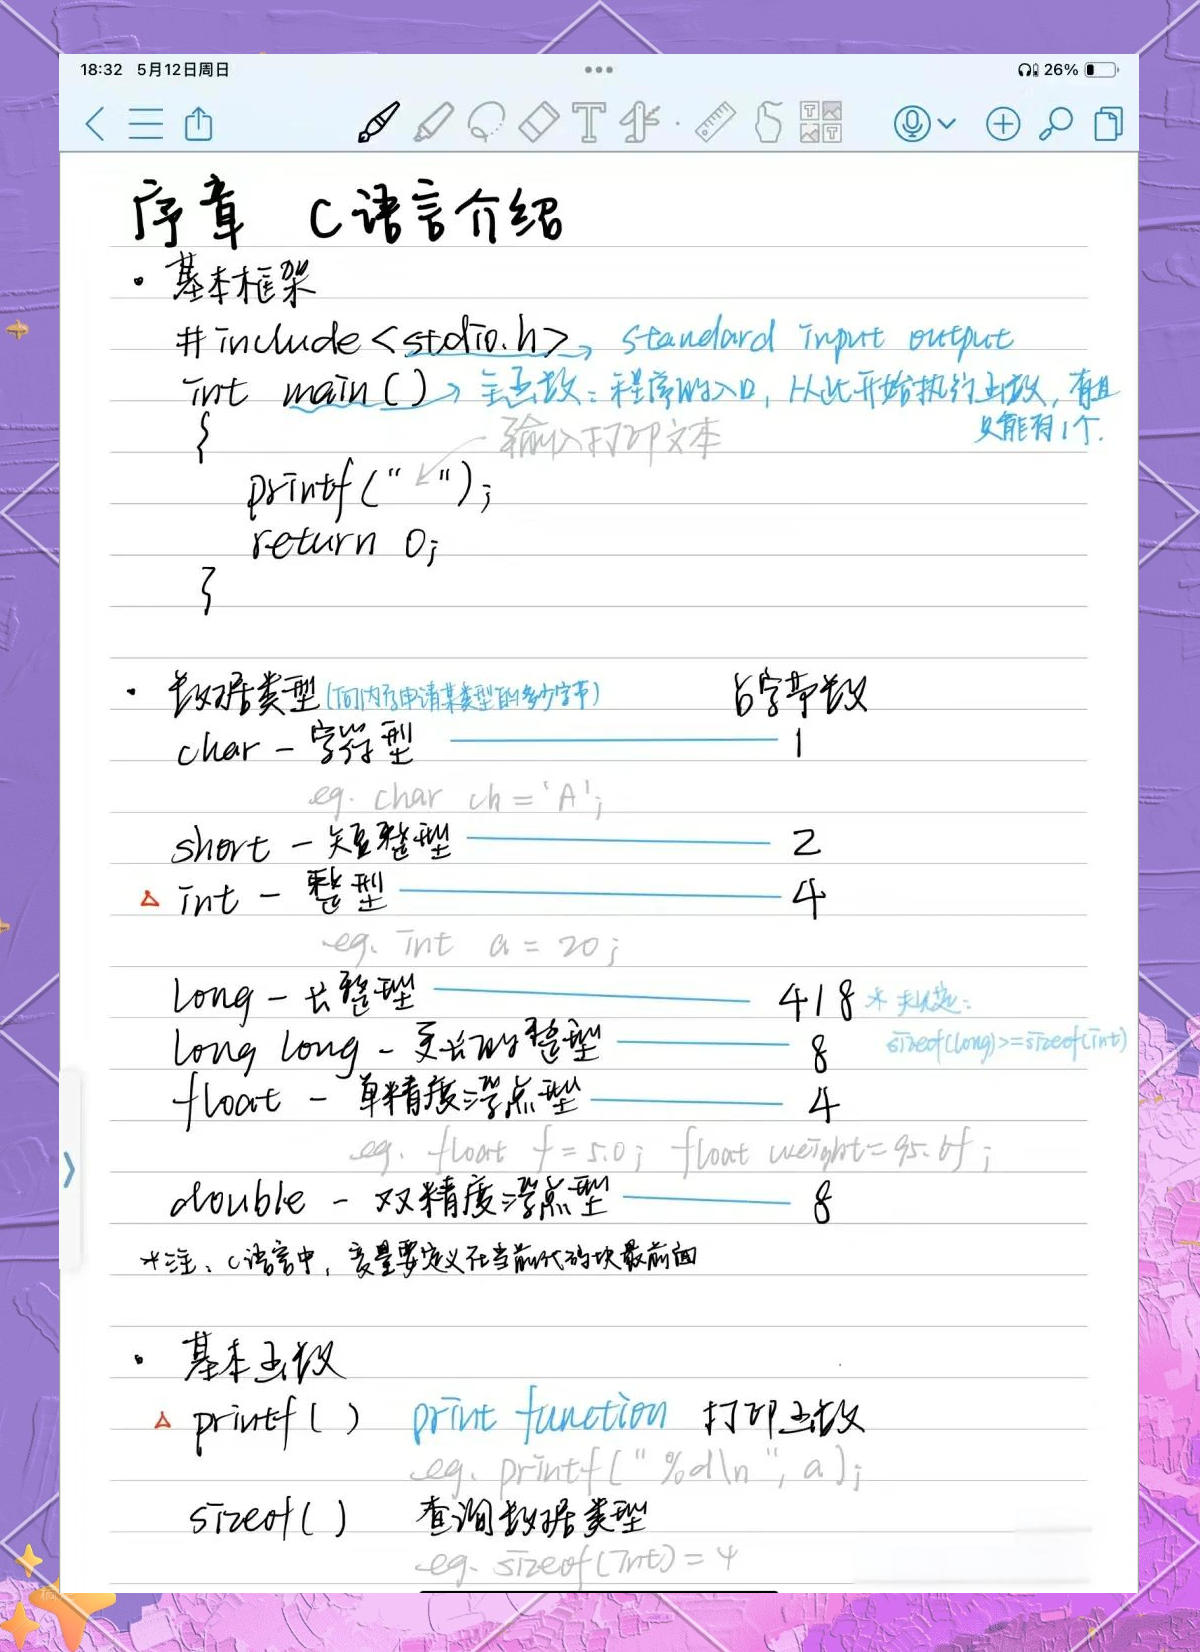 18:32 5月12日周日
26%
序章 C语言介绍
· 基本框架
#include<stdio.h> → standard input output
int main() → 主函数:程序的入口,从此开始执行函数,有且
只能有1个.
{
输入打印文本
printf(" ");
return 0;
}
· 数据类型(向内存申请某类型的多少字节) 占字节数
char - 字符型 1
eg. char ch = 'A';
short - 短整型 2
△ int - 整型 4
eg. int a = 20;
long - 长整型 4/8 *规定:
sizeof(long)>=sizeof(int)
long long - 更长的整型 8
float - 单精度浮点型 4
eg. float f = 5.0; float weight=95.6f;
double - 双精度浮点型 8
*注:C语言中,变量要定义在当前代码块最前面
· 基本函数
△ printf() print function 打印函数
eg. printf("%d\n", a);
sizeof() 查询数据类型
eg. sizeof(int)=4